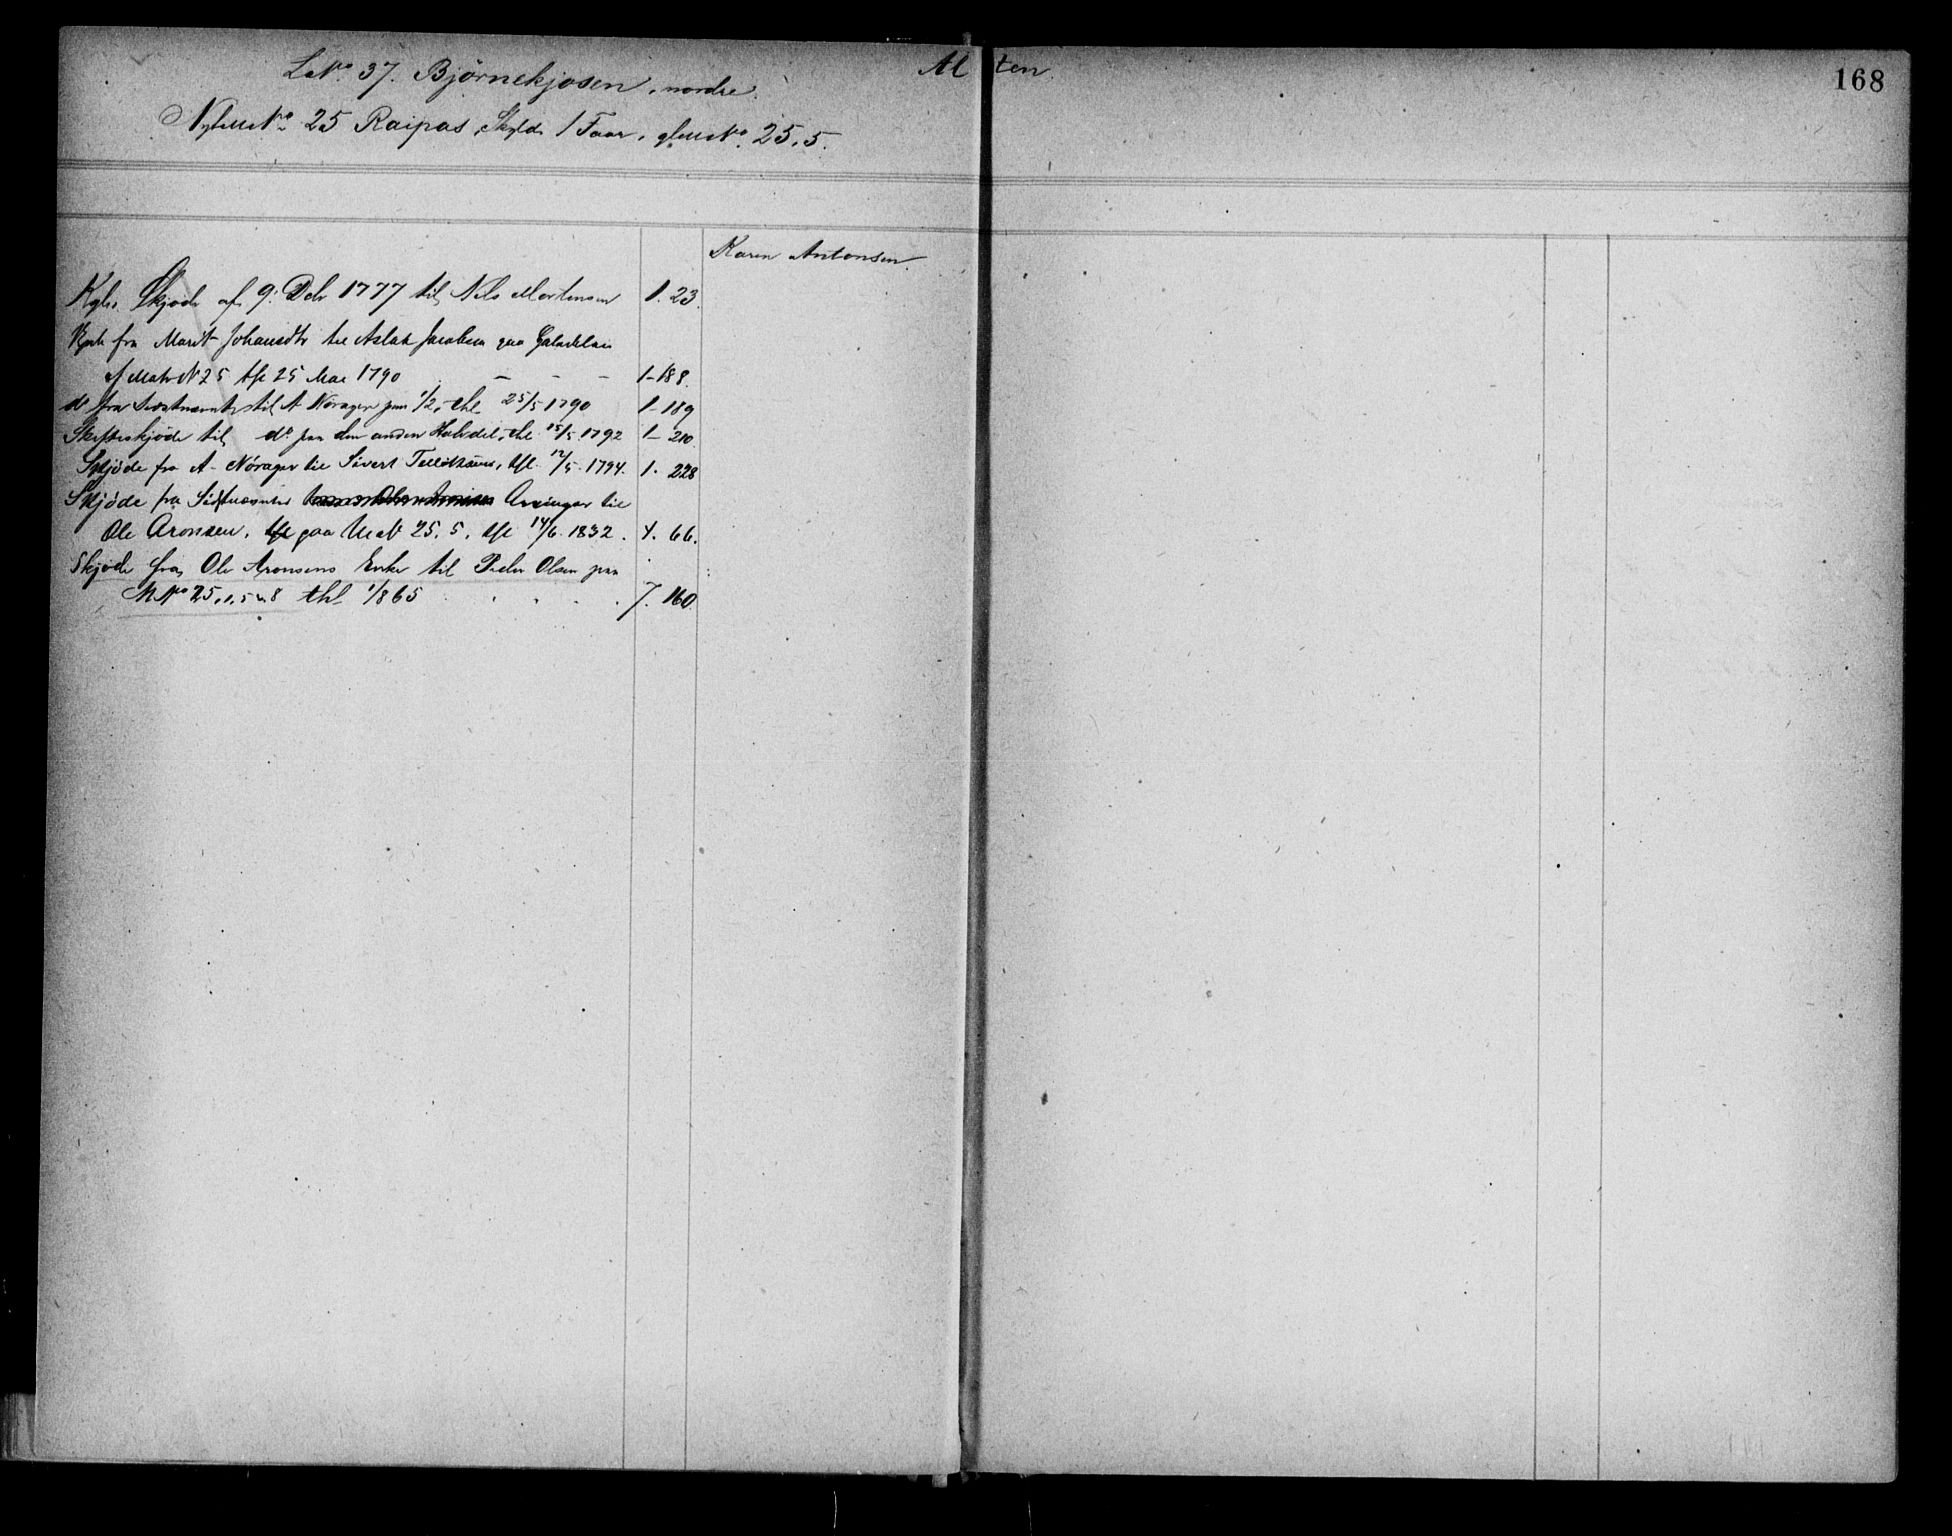 Al ten
168
LNo 37. Bjørnekjosen, nordre.
No 25 Raipas, Skyld 1 Faar, glMNo. 25.5.
Karen Antonsen.
Kgl. Skjøde af 9. Deb 1777 til Nils Mortensen 1. 23.
fra Marit Johansdtr til Aslak Jacobsen paa
af Matr N 25 thl 25 Mai 1790 - - - 1-188.
do fra Sidstnævnte til A Nørager paa 1/2, thl 25/5 1790 1-189
Skifteskjøde til do paa den anden Halvdel, thl 15/5 1792 1-210
Skjøde fra A. Nørager til Sivert, thl. 12/5. 1794. 1. 228
Skjøde fra Sidstnævntes Arvinger til
Ole Aronsen, paa MatN 25. 5, thl 14/6. 1832. 4. 66.
Skjøde fra Ole Aronsens Enke til Peder Olsen paa
MNo 25,1,5 &8 thl 1/865 . . . . 7. 160.